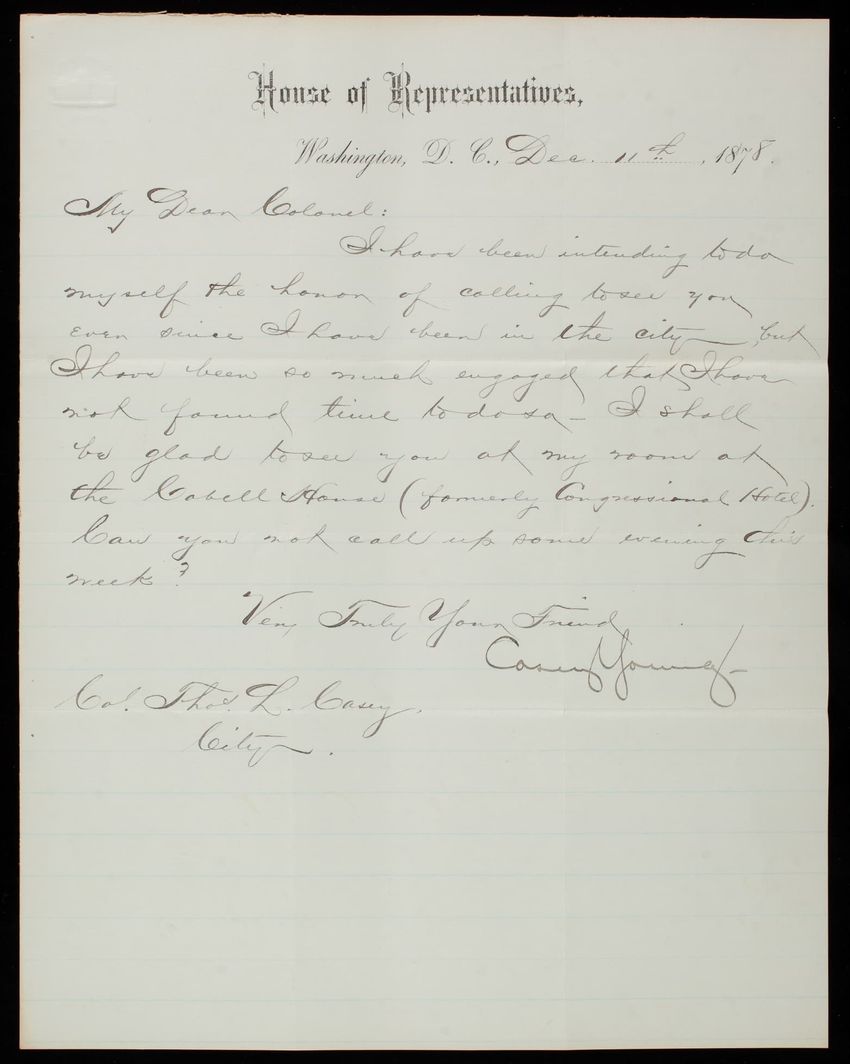 House of Representatives,
Washington, D. C., Dec. 11th, 1878.
My Dear Colonel:
I have been intending to do
myself the honor of calling to see you
ever since I have been in the city, but
I have been so much engaged that I have
not found time to do so - I shall
be glad to see you at my room at
the Cabell House (formerly Congressional Hotel).
Can you not call up some evening this
week?
Very Truly Your Friend
Casey Young
Col. Thos. L. Casey.
City.